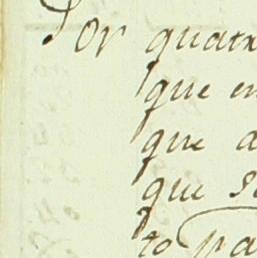 Por quatr
que en
que a
que s
to pa